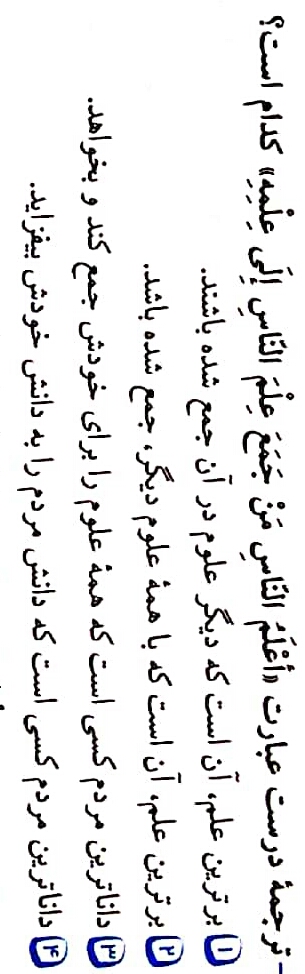 - ترجمهٔ درست عبارت «أَعْلَمُ النّاسِ مَنْ جَمَعَ عِلْمَ النّاسِ إِلَی عِلْمِهِ» کدام است؟
۱ برترین علم، آن است که دیگر علوم در آن جمع شده باشند.
۲ برترین علم، آن است که با همهٔ علوم دیگر، جمع شده باشد.
۳ داناترین مردم کسی است که همهٔ علوم را برای خودش جمع کند و بخواهد.
۴ داناترین مردم کسی است که دانش مردم را به دانش خودش بیفزاید.